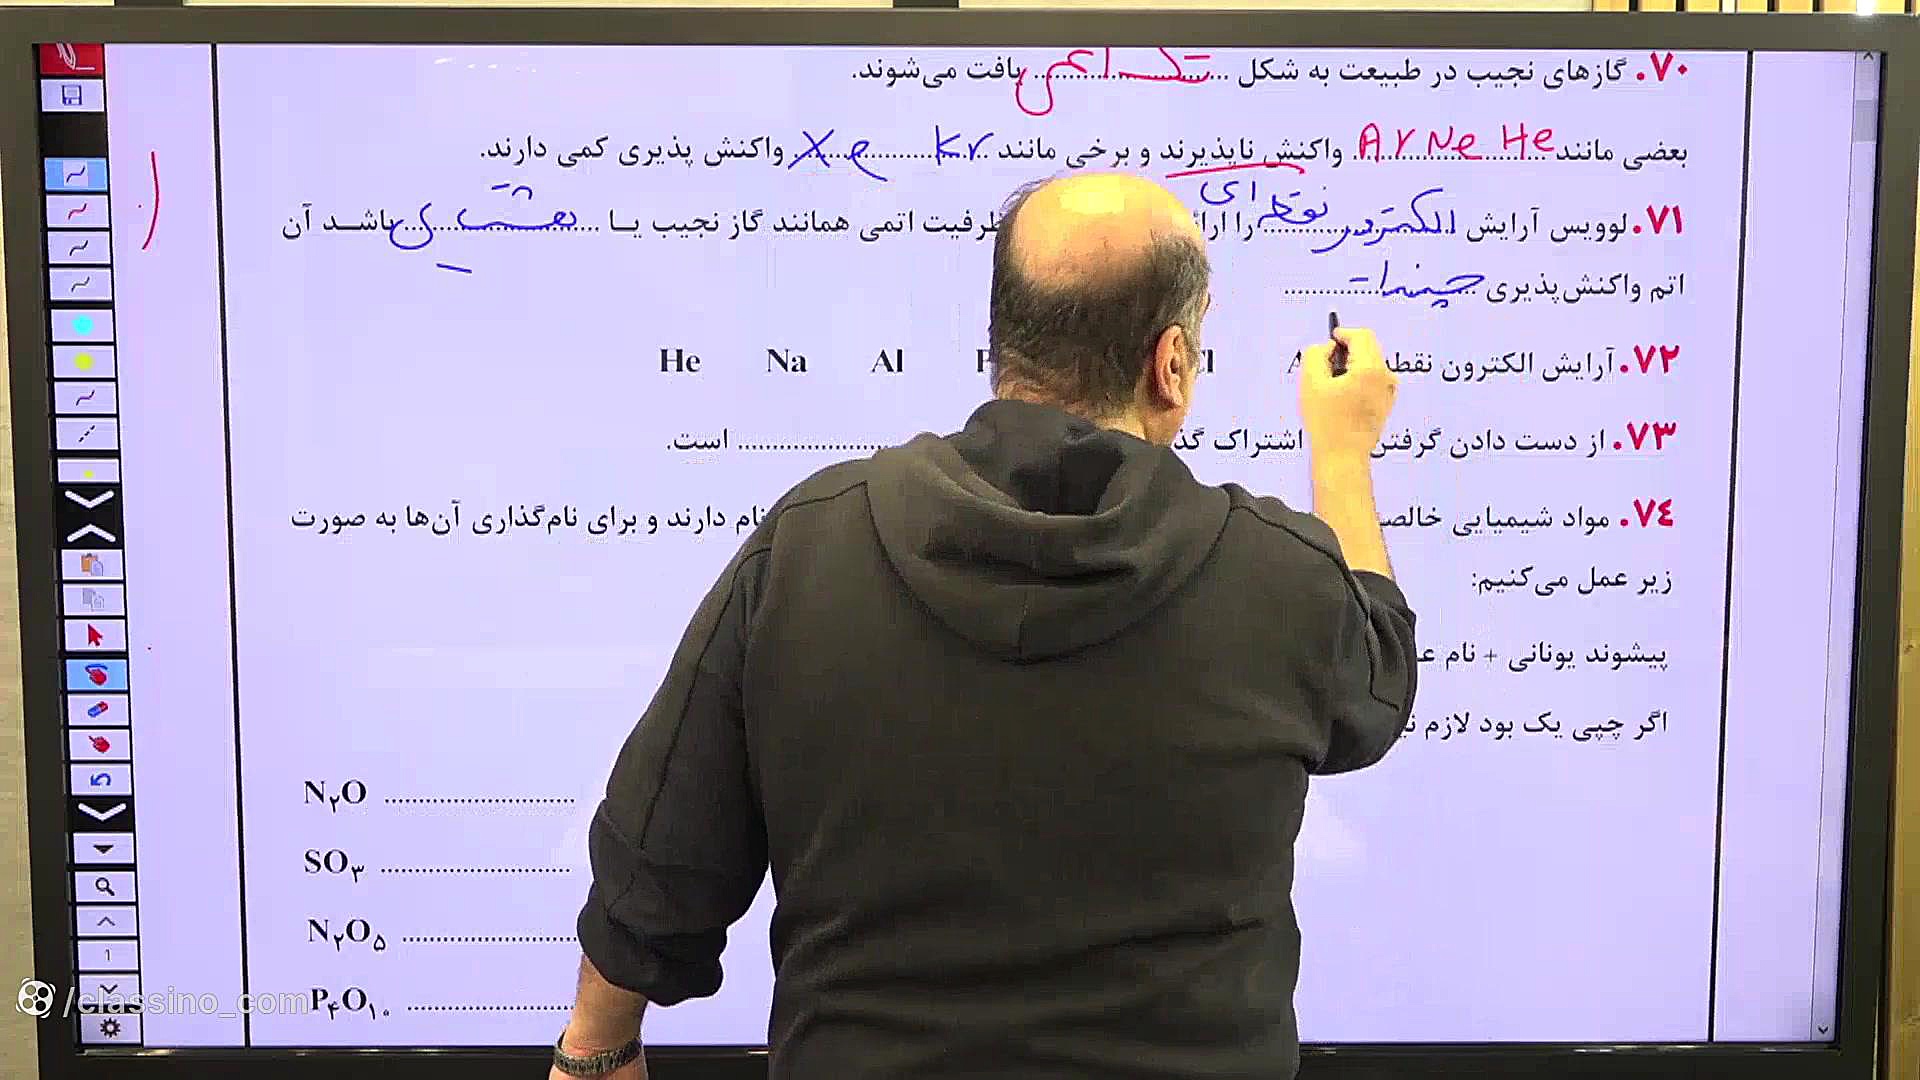 ۷۰. گازهای نجیب در طبیعت به شکل تک اتمی یافت می‌شوند.
بعضی مانند He Ne Ar واکنش ناپذیرند و برخی مانند Kr Xe واکنش پذیری کمی دارند.
۷۱. لوویس آرایش الکترون نقطه ای را ظرفیت اتمی همانند گاز نجیب یا باشد آن
اتم واکنش‌پذیری چندانی
۷۲. آرایش الکترون نقطه He Na Al
۷۳. از دست دادن گرفتن اشتراک است.
۷۴. مواد شیمیایی نام دارند و برای نام‌گذاری آن‌ها به صورت
زیر عمل می‌کنیم:
پیشوند یونانی + نام
اگر چپی یک بود لازم
N۲O ..............................
SO۳ ..............................
N۲O۵ ..............................
P۴O۱۰ ..............................
/classino_com